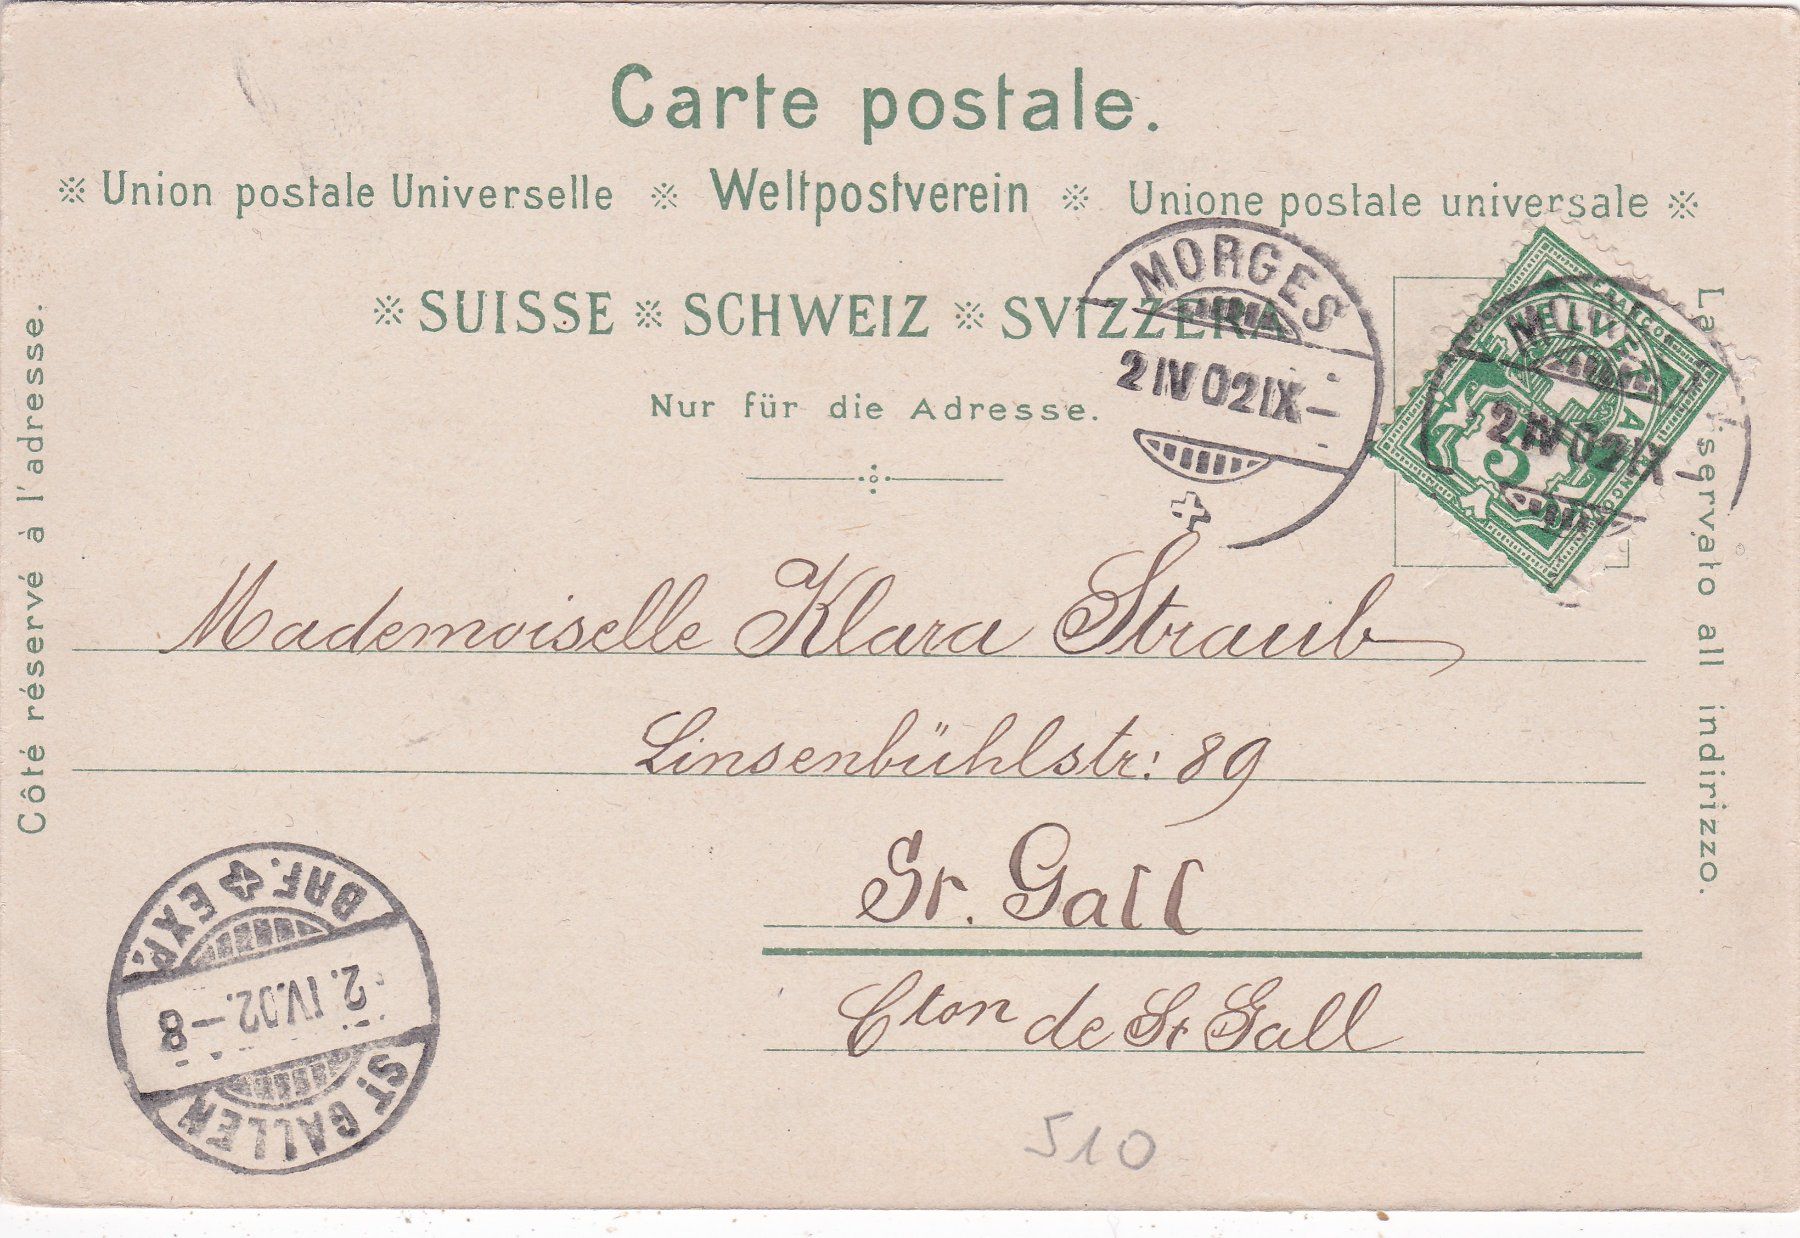 Carte postale.
※ Union postale Universelle ※ Weltpostverein ※ Unione postale universale ※
※ SUISSE ※ SCHWEIZ ※ SVIZZERA
Nur für die Adresse.
Côté réservé à l'adresse.
servato all indirizzo.
MORGES
2 IV 02 IX –
HELVETIA
FRANCO
5
2 IV 02 IX –
Mademoiselle Klara Straub
Linsenbühlstr: 89
St. Gall
Cton de St Gall
ST. GALLEN
2. IV. 02. – 8
BRF. EXP.
510